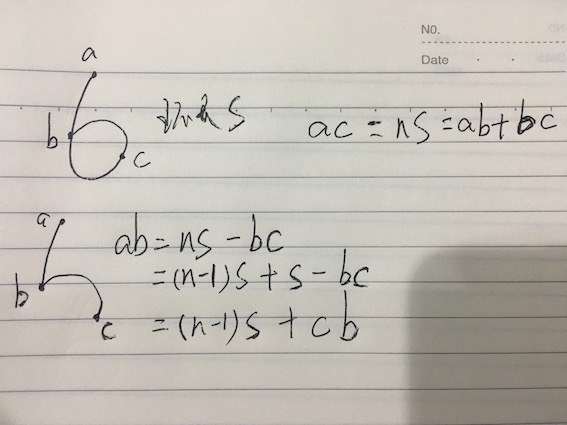 NO.
Date
a
b
c
S
ac = nS = ab + bc
a
b
c
ab = nS - bc
= (n-1)S + S - bc
= (n-1)S + cb